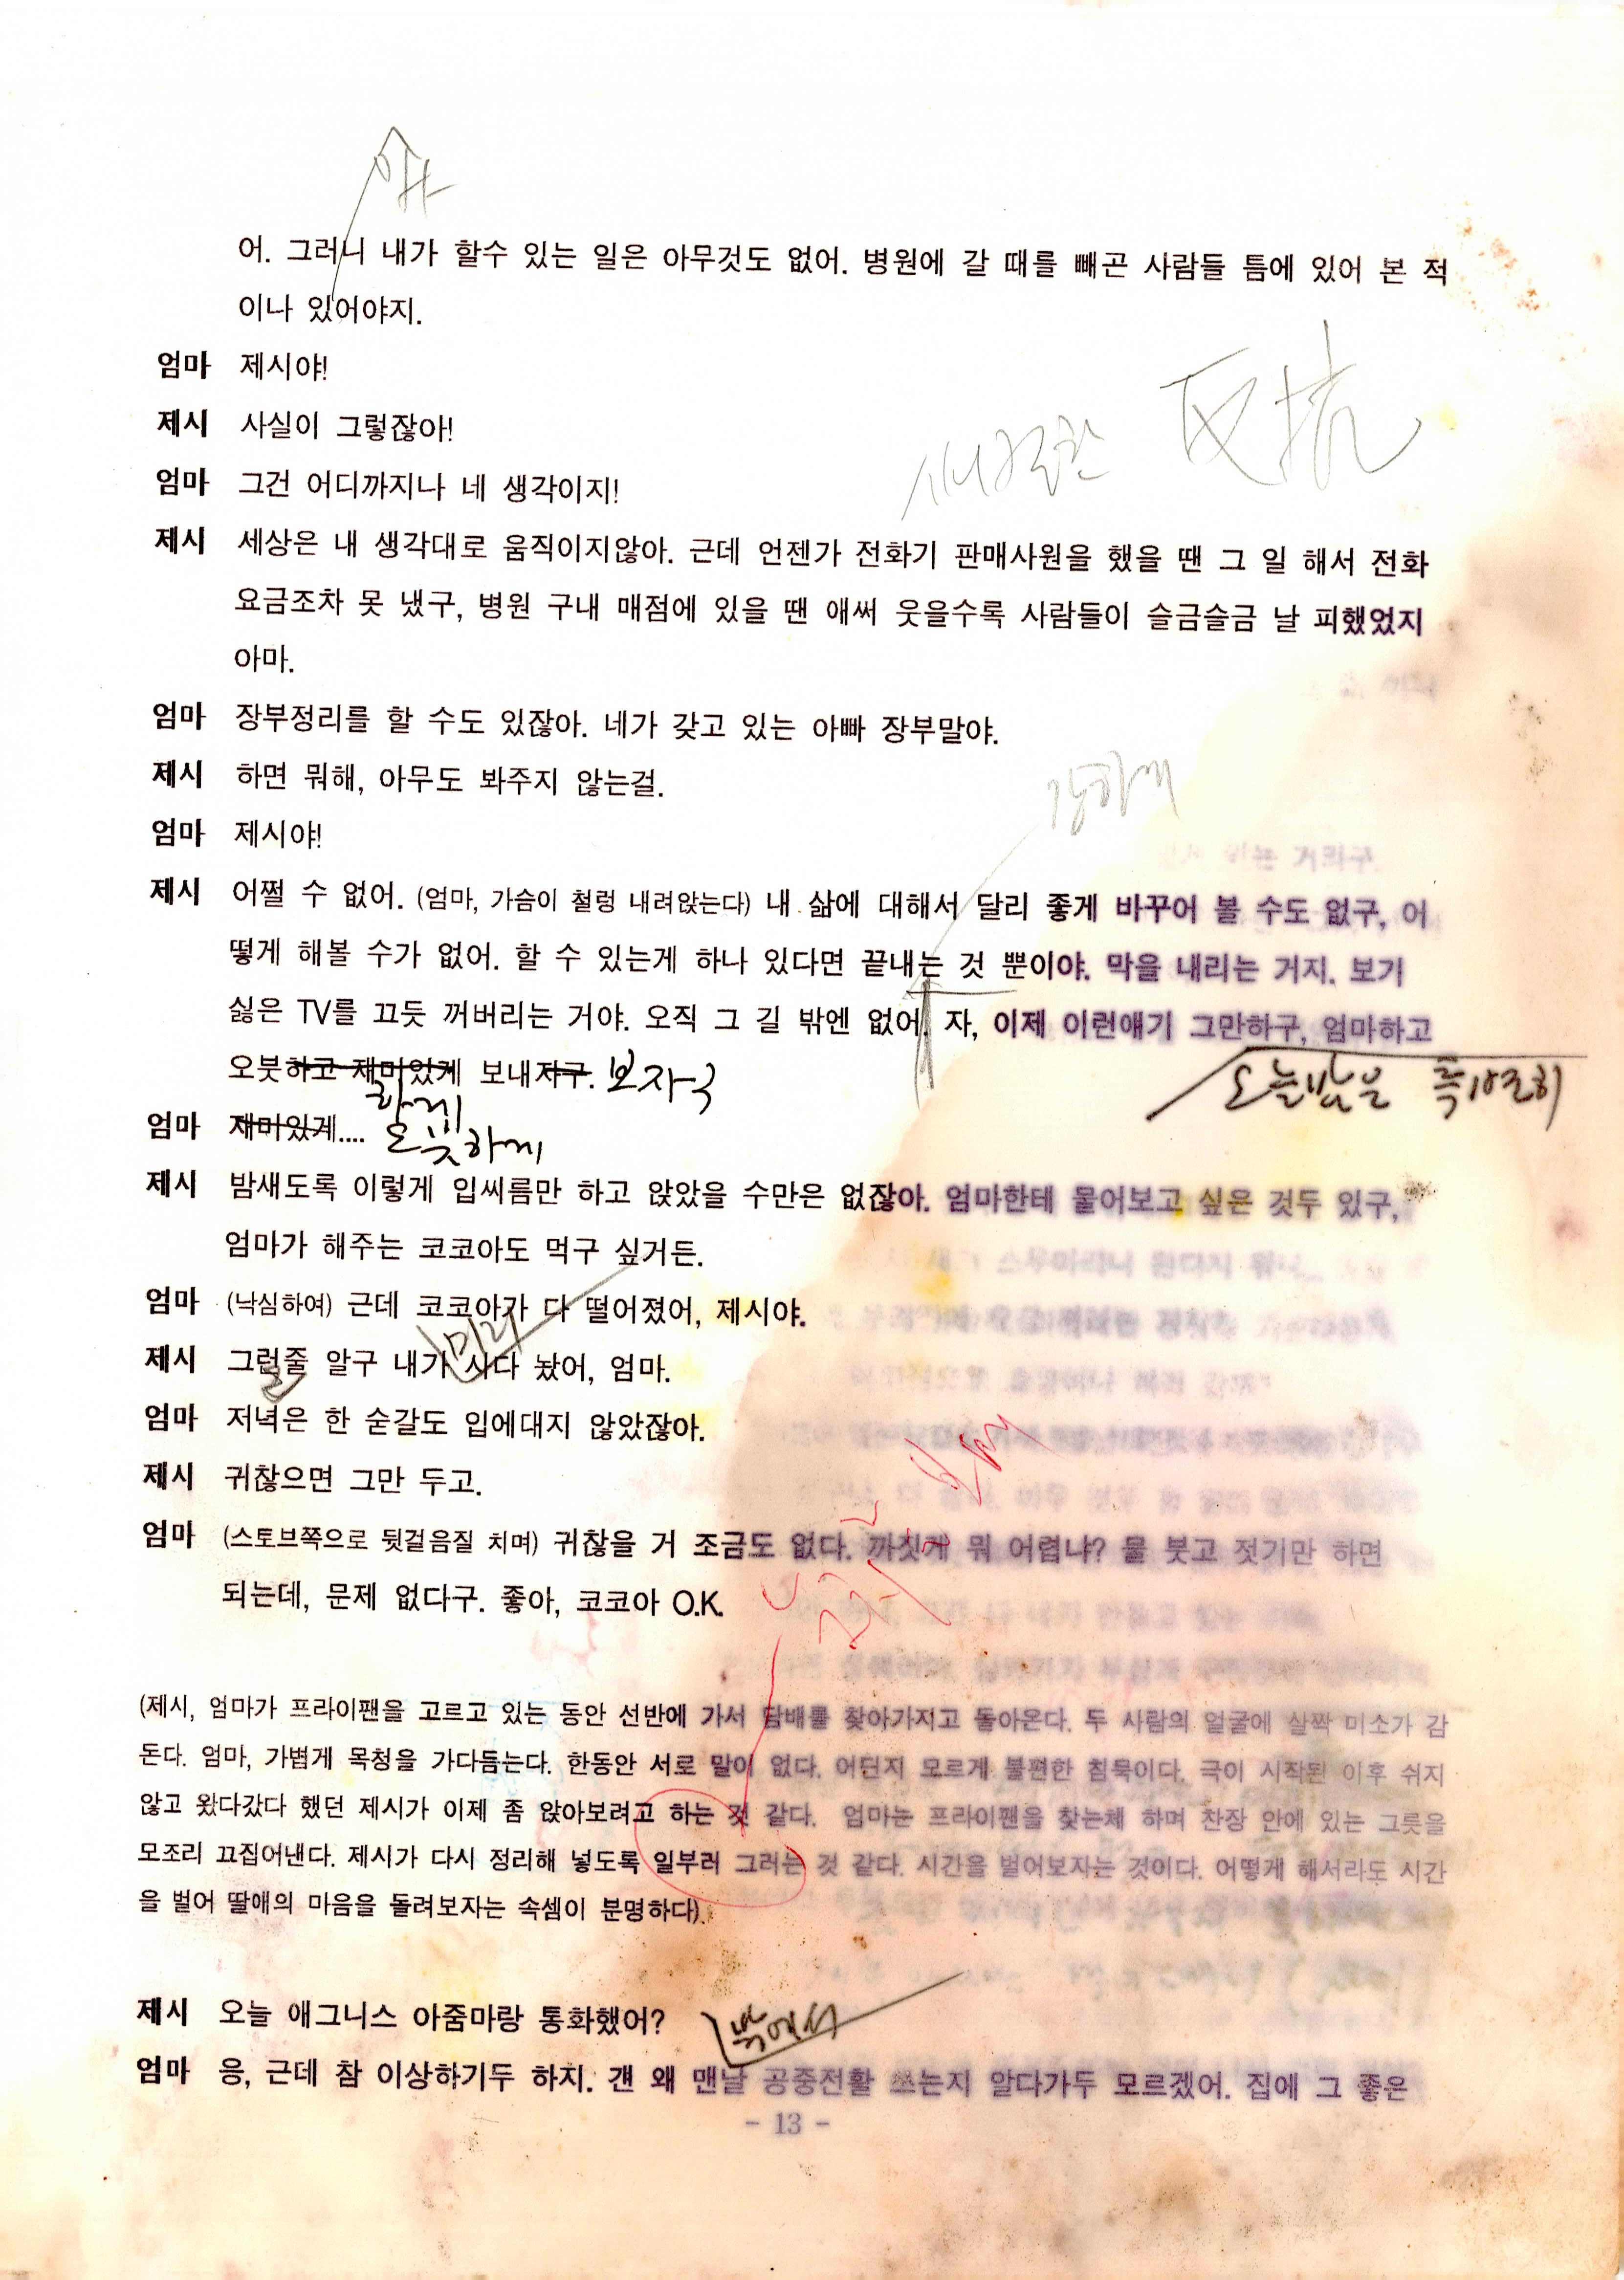 야
어. 그러니 내가 할수 있는 일은 아무것도 없어. 병원에 갈 때를 빼곤 사람들 틈에 있어 본 적
이나 있어야지.
엄마 제시야!
제시 사실이 그렇잖아!
反抗
엄마 그건 어디까지나 네 생각이지!
제시 세상은 내 생각대로 움직이지않아. 근데 언젠가 전화기 판매사원을 했을 땐 그 일 해서 전화
요금조차 못 냈구, 병원 구내 매점에 있을 땐 애써 웃을수록 사람들이 슬금슬금 날 피했었지
아마.
엄마 장부정리를 할 수도 있잖아. 네가 갖고 있는 아빠 장부말야.
제시 하면 뭐해, 아무도 봐주지 않는걸.
강하게
엄마 제시야!
제시 어쩔 수 없어. (엄마, 가슴이 철렁 내려앉는다) 내 삶에 대해서 달리 좋게 바꾸어 볼 수도 없구, 어
떻게 해볼 수가 없어. 할 수 있는게 하나 있다면 끝내는 것 뿐이야. 막을 내리는 거지. 보기
싫은 TV를 끄듯 꺼버리는 거야. 오직 그 길 밖엔 없어. 자, 이제 이런얘기 그만하구, 엄마하고
오붓하고 재미있게 보내자구. 보자구
오늘밤은 특별히
하게
엄마 재미있게.... 오붓하게
제시 밤새도록 이렇게 입씨름만 하고 앉았을 수만은 없잖아. 엄마한테 물어보고 싶은 것두 있구,
엄마가 해주는 코코아도 먹구 싶거든.
엄마 (낙심하여) 근데 코코아가 다 떨어졌어, 제시야.
미리
제시 그럴줄 알구 내가 사다 놨어, 엄마.
엄마 저녁은 한 숟갈도 입에대지 않았잖아.
제시 귀찮으면 그만 두고.
엄마 (스토브쪽으로 뒷걸음질 치며) 귀찮을 거 조금도 없다. 까짓게 뭐 어렵냐? 물 붓고 젓기만 하면
되는데, 문제 없다구. 좋아, 코코아 O.K.
(제시, 엄마가 프라이팬을 고르고 있는 동안 선반에 가서 담배를 찾아가지고 돌아온다. 두 사람의 얼굴에 살짝 미소가 감
돈다. 엄마, 가볍게 목청을 가다듬는다. 한동안 서로 말이 없다. 어딘지 모르게 불편한 침묵이다. 극이 시작된 이후 쉬지
않고 왔다갔다 했던 제시가 이제 좀 앉아보려고 하는 것 같다. 엄마는 프라이팬을 찾는체 하며 찬장 안에 있는 그릇을
모조리 끄집어낸다. 제시가 다시 정리해 넣도록 일부러 그러는 것 같다. 시간을 벌어보자는 것이다. 어떻게 해서라도 시간
을 벌어 딸애의 마음을 돌려보자는 속셈이 분명하다).
제시 오늘 애그니스 아줌마랑 통화했어?
밖에서
엄마 응, 근데 참 이상하기두 하지. 걘 왜 맨날 공중전활 쓰는지 알다가두 모르겠어. 집에 그 좋은
- 13 -